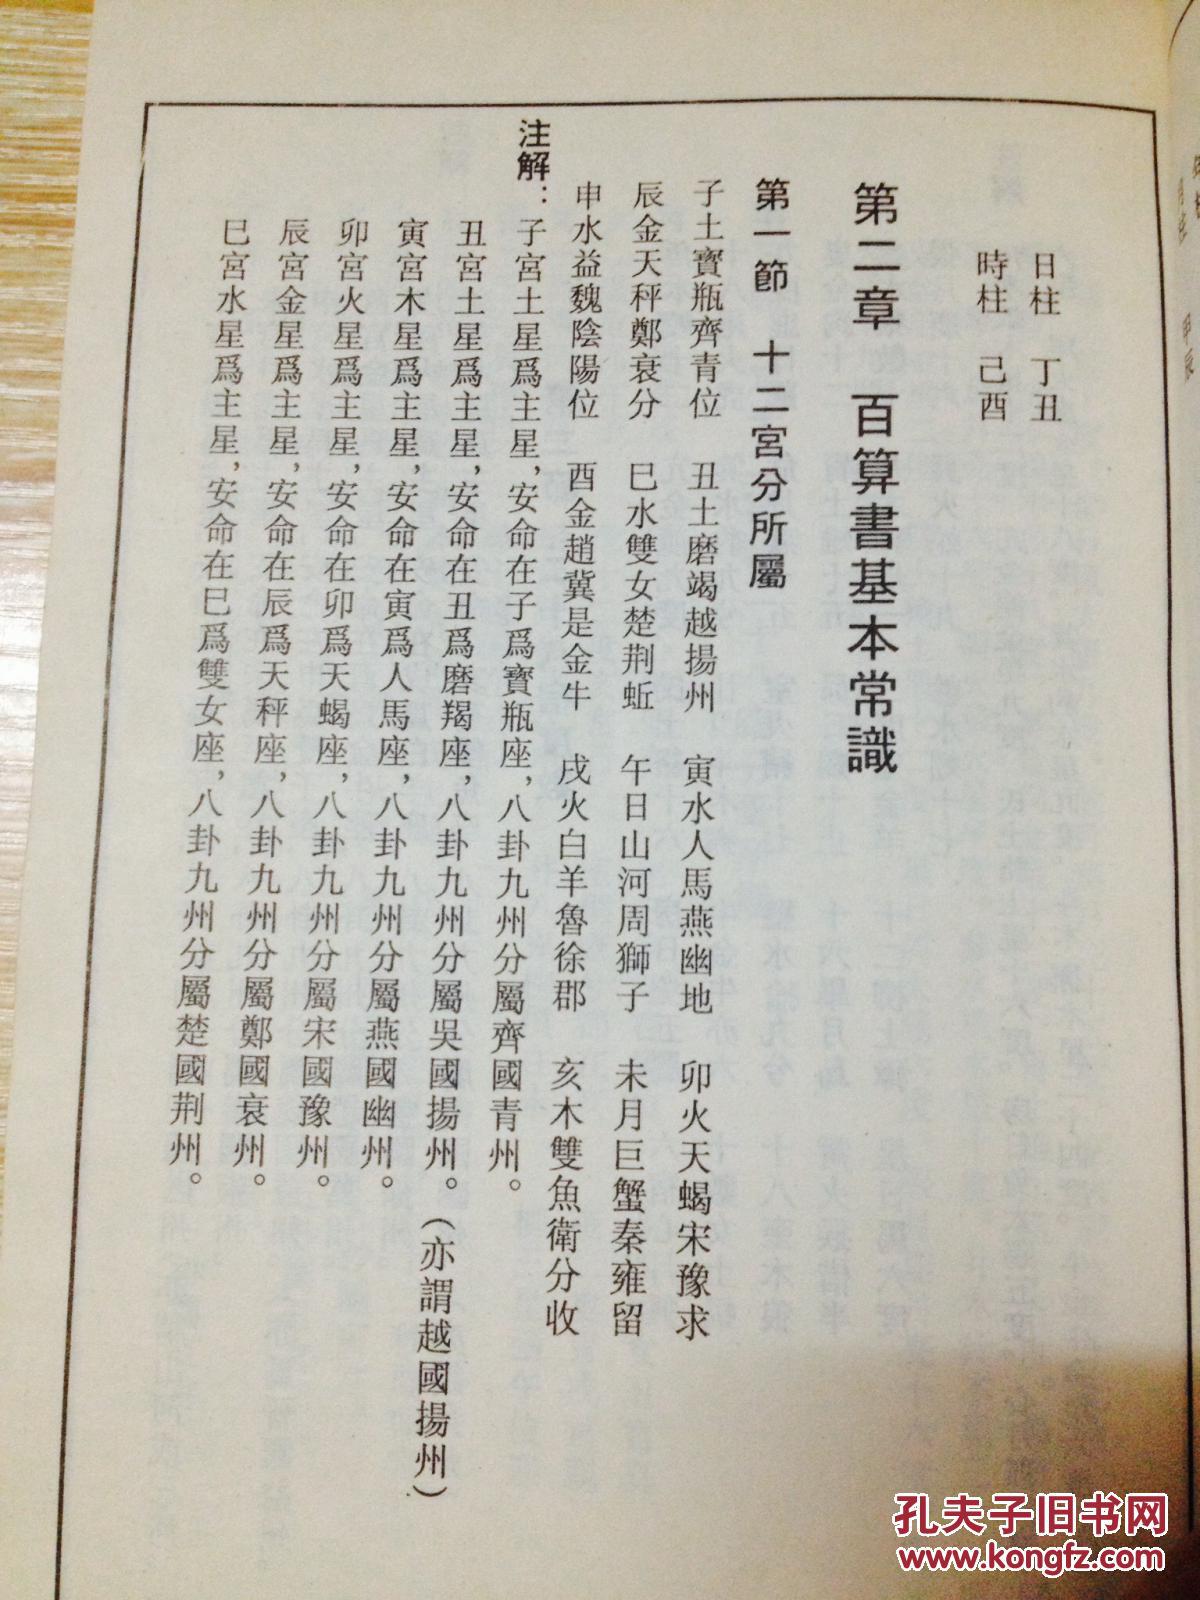 日柱　丁丑
時柱　己酉
第二章　百算書基本常識
第一節　十二宮分所屬
子土寶瓶齊青位　丑土磨竭越揚州　寅水人馬燕幽地　卯火天蝎宋豫求
辰金天秤鄭衰分　巳水雙女楚荆蚯　午日山河周獅子　未月巨蟹秦雍留
申水益魏陰陽位　酉金趙冀是金牛　戌火白羊魯徐郡　亥木雙魚衛分收
注解：子宮土星爲主星，安命在子爲寶瓶座，八卦九州分屬齊國青州。
丑宮土星爲主星，安命在丑爲磨羯座，八卦九州分屬吳國揚州。（亦謂越國揚州）
寅宮木星爲主星，安命在寅爲人馬座，八卦九州分屬燕國幽州。
卯宮火星爲主星，安命在卯爲天蝎座，八卦九州分屬宋國豫州。
辰宮金星爲主星，安命在辰爲天秤座，八卦九州分屬鄭國衰州。
巳宮水星爲主星，安命在巳爲雙女座，八卦九州分屬楚國荆州。
孔夫子旧书网
www.kongfz.com